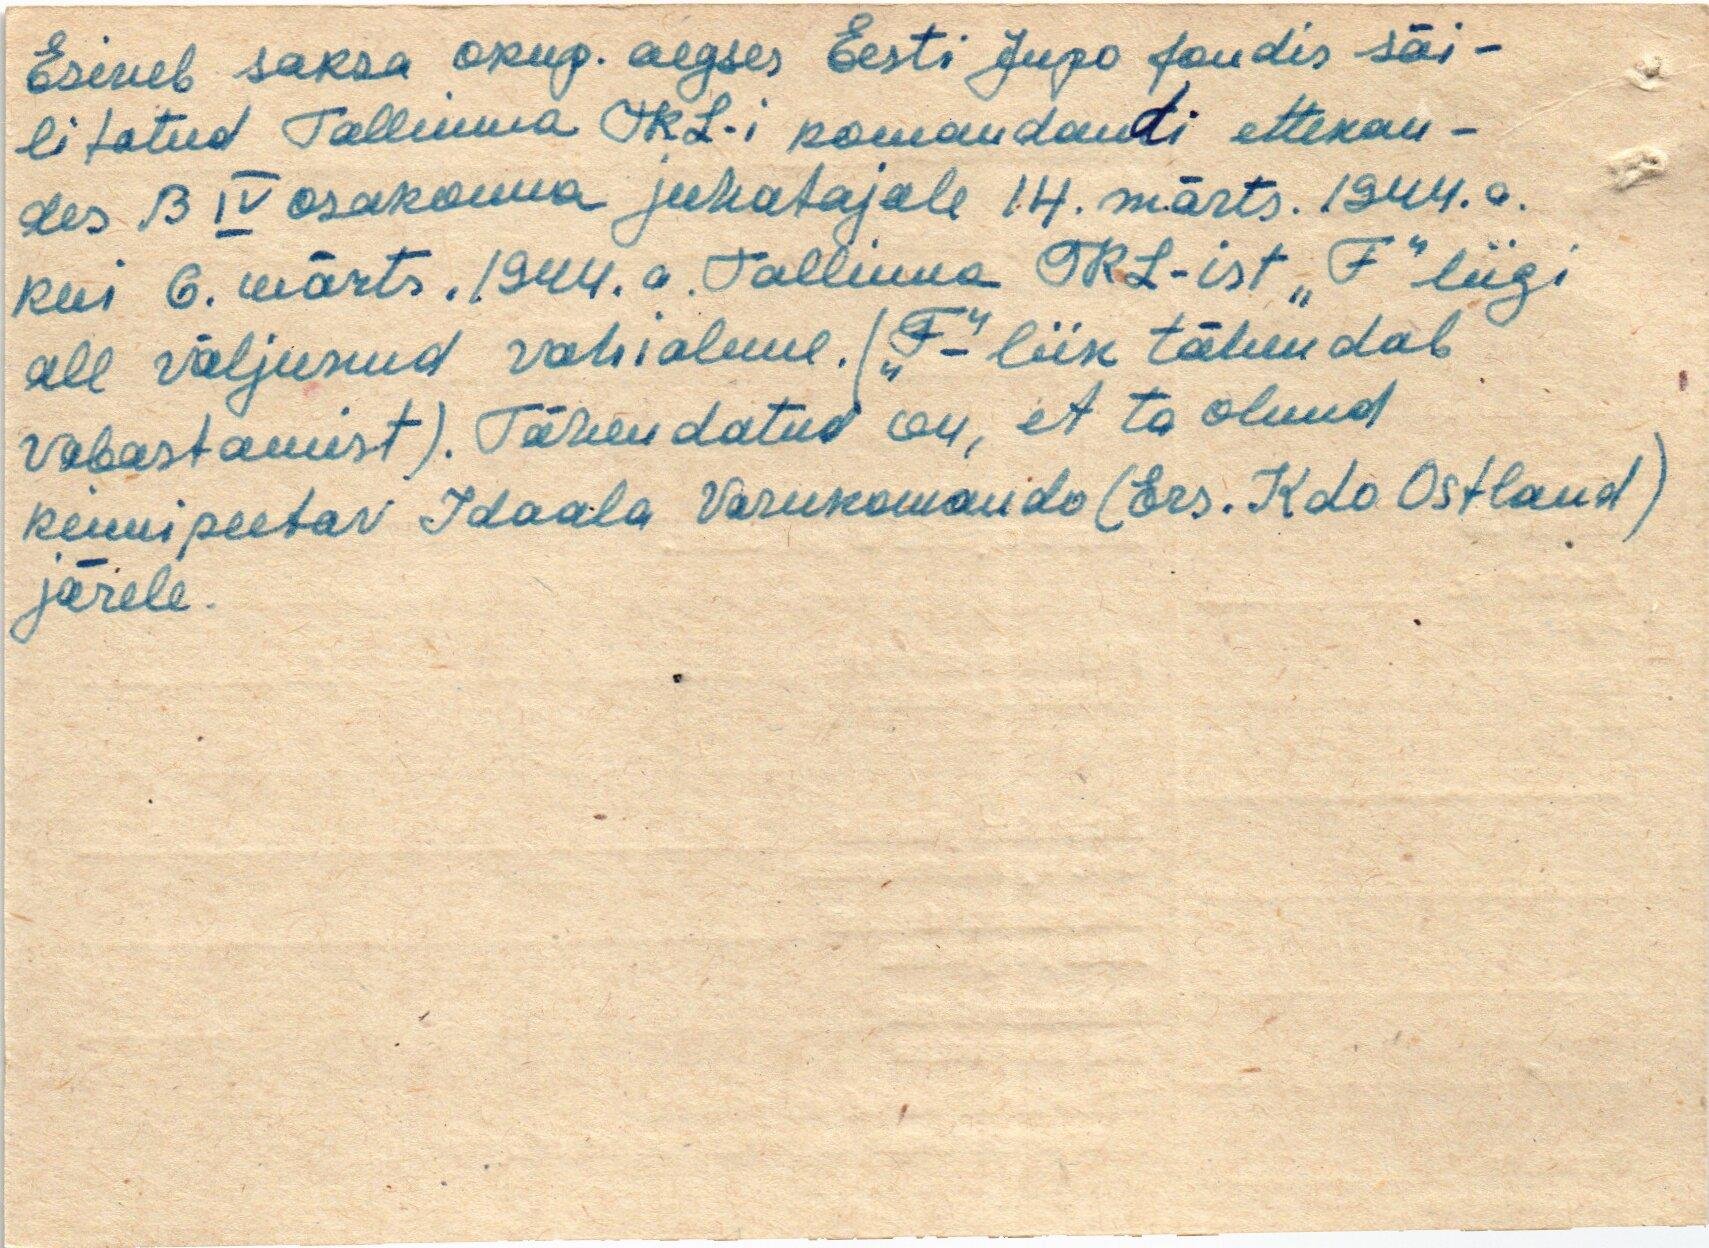 Esineb saksa okup. aegses Eesti Jupo fondis säi-
litatud Tallinna TKL-i komandandi ettekan-
des B IV osakonna juhatajale 14. märts. 1944. a.
kui 6. märts. 1944. a. Tallinna TKL-ist „F" liigi
all väljunud vahialune. („F"- liik tähendab
vabastamist). Tähendatud on, et ta olnud
kinnipeetav Idaala Varukomando (Ers. Kdo Ostland)
järele.